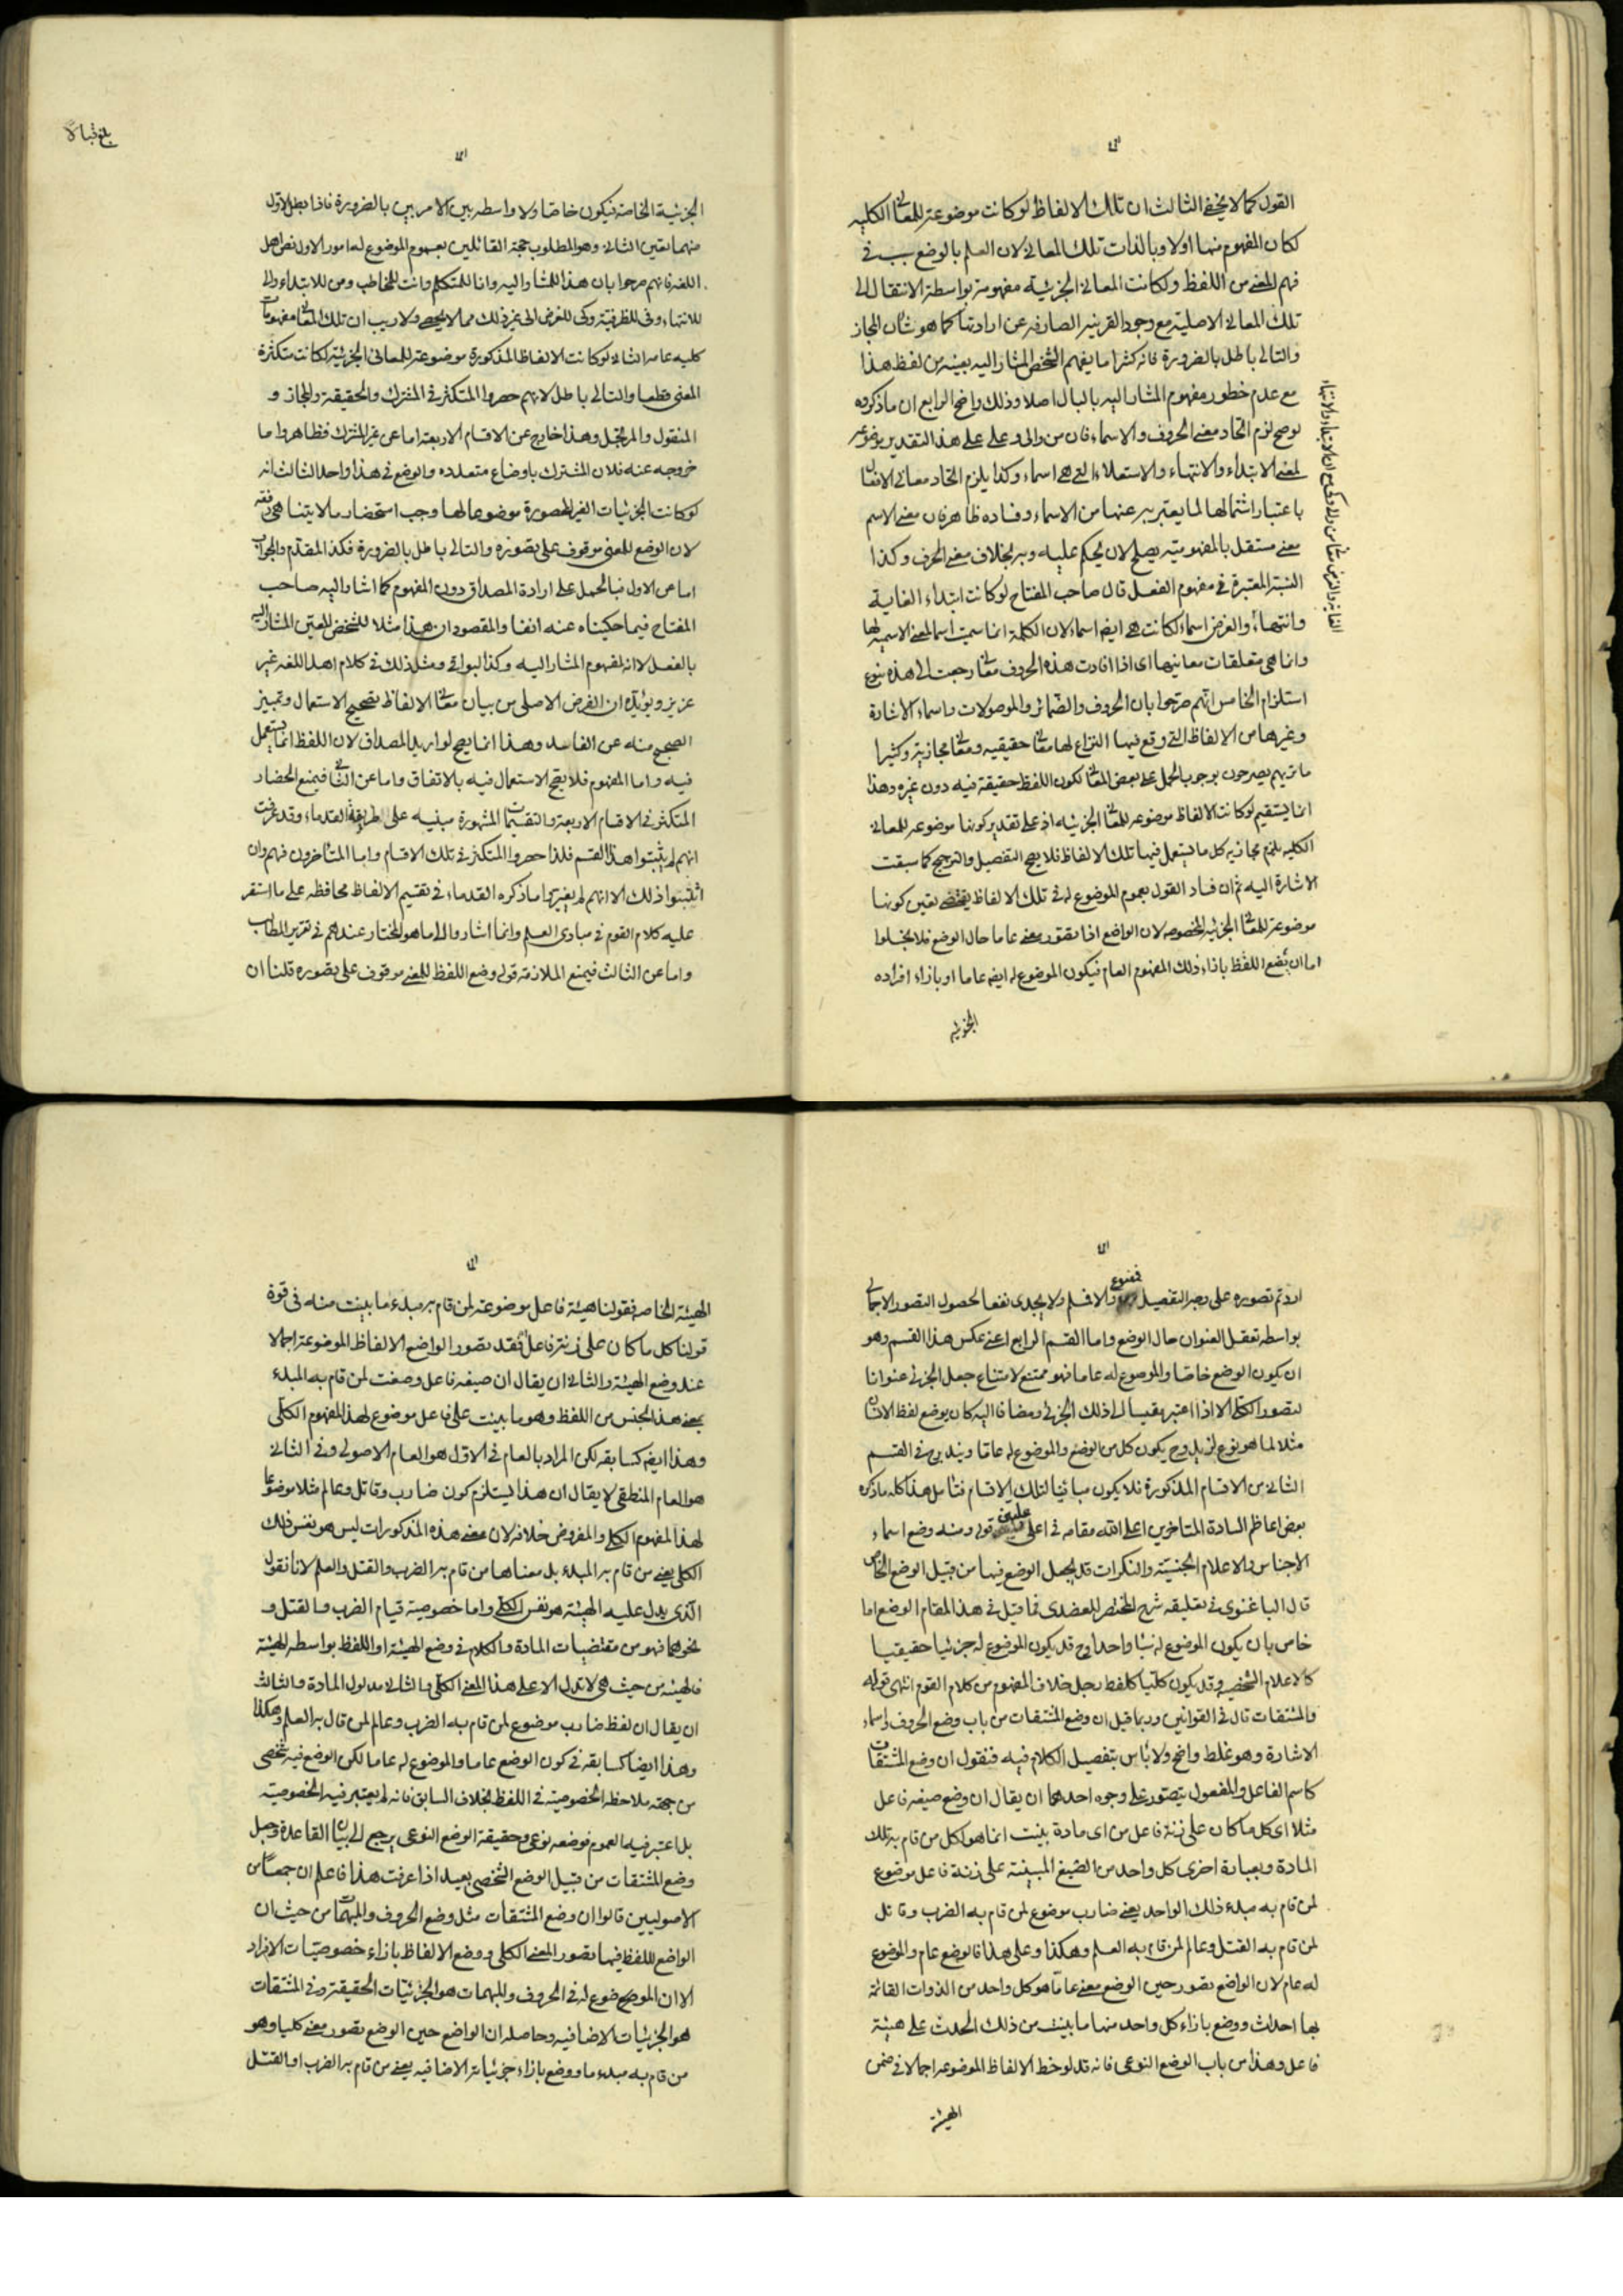 القول كما لا يخفى الثالث ان تلك الالفاظ لو كانت موضوعة للمعانى الكلية
لكان المفهوم منها اولا وبالذات تلك المعانى لان العلم بالوضع سبب فى
فهم المعنى من اللفظ ولكانت المعانى الجزئية مفهومة بواسطة الانتقال الى
تلك المعانى الاصلية مع وجود القرينه الصارفه عن ارادتها كما هو شأن المجاز
والتالى باطل بالضرورة فانه كثيرا ما يفهم الشخص المشار اليه بعينه من لفظ هذا
مع عدم خطور مفهوم المشار اليه بالبال اصلا وذلك واضح الرابع ان ما ذكروه
لو صح لزم اتحاد معنى الحروف والاسماء فان من والى وعلى على هذا التقدير موضوعه
لمعنى الابتداء والانتهاء والاستعلاء التى هى اسماء وكذا يلزم اتحاد معانى الافعال
باعتبار اشتمالها لما يعتبر به عنها من الاسماء وفساده ظاهر فان معنى الاسم
معنى مستقل بالمفهومية يصلح لان يحكم عليه وبه بخلاف معنى الحرف وكذا
النسبة المعتبرة فى مفهوم الفعل قال صاحب المفتاح لو كانت ابتداء الغاية
وانتهاء والغرض اسماء لكانت هى ايضا اسماء لان الكلمة انما سميت اسما لمعنى الاسمية لها
وانما هى متعلقات معانيها اى اذا افادت هذه الحروف معانى رجعت الى هذه بنوع
استلزام الخامس انهم صرحوا بان الحروف والضمائر والموصولات واسماء الاشارة
وغيرها من الالفاظ التى وقع فيها النزاع لها معانى حقيقيه ومعانى مجازية وكثيرا
ما تريهم يصرحون بوجوب الحمل على بعض المعانى لكون اللفظ حقيقة فيه دون غيره وهذا
انما يستقيم لو كانت الالفاظ موضوعه للمعانى الجزئيه اذ على تقدير كونها موضوعه للمعانى
الكليه يلزم مجازية كل ما يستعمل فيها تلك الالفاظ فلا يصح التفصيل والترجيح كما سبقت
الاشارة اليه ثم ان فساد القول بعموم الموضوع له فى تلك الالفاظ يقتضى تعين كونها
موضوعة للمعانى الجزئيه المخصوصه لان الواضع اذا تصور معنى عاما حال الوضع فلا يخلوا
اما ان يضع اللفظ باذاء ذلك المفهوم العام فيكون الموضوع له ايضا عاما او بازاء افراده
الجزئيه
الجزئية الخاصة فيكون خاصا ولا واسطه بين الامرين بالضرورة فاذا بطل الاول
منهما تعين الثانى وهو المطلوب حجة القائلين بعموم الموضوع له امور الاول نص اهل
اللغه فانهم صرحوا بان هذا للمشار اليه وانا للمتكلم وانت للمخاطب ومن للابتداء والى
للانتهاء وفى للظرفية وكى للغرض الى غير ذلك مما لا يحصى ولا ريب ان تلك المعانى مفهومات
كليه عامه الثانى لو كانت الالفاظ المذكورة موضوعة للمعانى الجزئية لكانت متكثرة
المعنى قطعا والتالى باطل لانهم حصروا المتكثر فى المشترك والحقيقة والمجاز و
المنقول والمرتجل وهذا خارج عن الاقسام الاربعة اما عن غير المشترك فظاهر واما
خروجه عنه فلان المشترك باوضاع متعدده والوضع فى هذا واحد الثالث انه
لو كانت الجزئيات الغير المحصورة موضوعا لها وجب استحضار ما لا يتناهى دفعه
لان الوضع للمعنى موقوف على تصوره والتالى باطل بالضرورة فكذا المقدم والجواب
اما عن الاول فبالحمل على ارادة المصداق دون المفهوم كما اشار اليه صاحب
المفتاح فيما حكيناه عنه انفا والمقصود ان هذا مثلا للشخص المعين المشار اليه
بالفعل لا انه لمفهوم المشار اليه وكذا البواقى ومثل ذلك فى كلام اهل اللغه غير
عزيز ويؤيده ان الغرض الاصلى من بيان معانى الالفاظ تصحيح الاستعمال وتميز
الصحيح منه عن الفاسد وهذا انما يصح لو اريد المصداق لان اللفظ انما يستعمل
فيه واما المفهوم فلا يصح الاستعمال فيه بالاتفاق واما عن الثانى فبمنع الحصار
المتكثر فى الاقسام الاربعة والتقسيمات المشهورة مبنيه على طريقة القدماء وقد عرفت
انهم لم يثبتوا هذا القسم فلذا حصروا المتكثر فى تلك الاقسام واما المتأخرون فهم وان
اثبتوا ذلك الا انهم لم يغيروا ما ذكره القدماء فى تقسيم الالفاظ محافظه على ما استقر
عليه كلام القوم فى مبادى العلم وانما اشاروا الى ما هو المختار عندهم فى تقرير المطالب
واما عن الثالث فبمنع الملازمة قوله وضع اللفظ للمعنى موقوف على تصوره قلنا ان
اردتم تصوره على وجه التفصيل فممنوع والا فسلم ولا يجدى نفعا لحصول التصور الاجمالى
بواسطه تعقل العنوان حال الوضع واما القسم الرابع اعنى عكس هذا القسم وهو
ان يكون الوضع خاصا والموضوع له عاما فهو ممتنع لامتناع جعل الجزئى عنوانا
لتصور الكلى الا اذا اعتبر مقيسا الى ذلك الجزئى ومضافا اليه كان يوضع لفظ الانسان
مثلا لما هو نوع لزيد وح يكون كل من الوضع والموضوع له عاما ويندرج فى القسم
الثانى من الاقسام المذكورة فلا يكون مباينا لتلك الاقسام فتأمل هذا كله ما ذكره
بعض اعاظم السادة المتاخرين اعلى الله مقامه فى اعلى عليين قوله ومنه وضع اسماء
الاجناس والاعلام الجنسية والنكرات قد يجعل الوضع فيها من قبيل الوضع الخاص
قال الباغنوى فى تعليقه شرح المختصر العضدى فما قيل فى هذا المقام الوضع اما
خاص بان يكون الموضوع له شيئا واحدا وح قد يكون الموضوع له جزئيا حقيقيا
كالاعلام الشخصيه وقد يكون كليا كلفظ رجل خلاف المفهوم من كلام القوم انتهى قوله
والمشتقات قال فى القوانين وربما قيل ان وضع المشتقات من باب وضع الحروف واسماء
الاشارة وهو غلط واضح ولا بأس بتفصيل الكلام فيه فنقول ان وضع المشتقات
كاسم الفاعل والمفعول يتصور على وجوه احدها ان يقال ان وضع صيغه فاعل
مثلا اى كل ما كان على زنة فاعل من اى مادة بنيت انما هو لكل من قام به تلك
المادة وبعبارة اخرى كل واحد من الصيغ المبنية على زنة فاعل موضوع
لمن قام به مبدء ذلك الواحد يعنى ضارب موضوع لمن قام به الضرب وقاتل
لمن قام به القتل وعالم لمن قام به العلم وهكذا وعلى هذا فالوضع عام والموضوع
له عام لان الواضع تصور حين الوضع معنى عاما هو كل واحد من الذوات القائمة
بها احداث ووضع بازاء كل واحد منها ما بنيت من ذلك الحدث على هيئة
فاعل وهذا من باب الوضع النوعى فانه قد لوحظ الالفاظ الموضوعه اجمالا فى ضمن
الهيئة
الهيئة الخاصه فقولنا هيئة فاعل موضوعة لمن قام به مبدء ما بنيت منه فى قوة
قولنا كل ما كان على زنة فاعل فقد تصور الواضع الالفاظ الموضوعة اجمالا
عند وضع الهيئة والثانى ان يقال ان صيغه فاعل وضعت لمن قام به المبدء
يعنى هذا الجنس من اللفظ وهو ما بنيت على فاعل موضوع لهذا المفهوم الكلى
وهذا ايضا كسابقه لكن المراد بالعام فى الاول هو العام الاصولى وفى الثانى
هو العام المنطقى لا يقال ان هذا يستلزم كون ضارب وقاتل وعالم مثلا موضوعا
لهذا المفهوم الكلى والمفروض خلافه لان معنى هذه المذكورات ليس هو نفس ذلك
الكلى يعنى من قام به المبدء بل معناها من قام به الضرب والقتل والعلم لانا نقول
الذى يدل عليه الهيئة هو نفس الكلى واما خصوصية قيام الضرب والقتل و
نحوهما فهو من مقتضيات المادة والكلام فى وضع الهيئة او اللفظ بواسطه الهيئة
فالهيئه من حيث هى لا تدل الا على هذا المعنى الكلى والثانى مدلول المادة والثالث
ان يقال ان لفظ ضارب موضوع لمن قام به الضرب وعالم لمن قال به العلم وهكذا
وهذا ايضا كسابقه فى كون الوضع عاما والموضوع له عاما لكن الوضع فيه شخصى
من جهة ملاحظه الخصوصية فى اللفظ بخلاف السابق فانه لم يعتبر فيه الخصوصية
بل اعتبر فيه العموم فوضعه نوعى وحقيقة الوضع النوعى يرجع الى بيان القاعدة وجعل
وضع المشتقات من قبيل الوضع الشخصى بعيد اذا عرفت هذا فاعلم ان جمعا من
الاصوليين قالوا ان وضع المشتقات مثل وضع الحروف والمبهمات من حيث ان
الواضع للفظ فيها تصور المعنى الكلى ووضع الالفاظ بازاء خصوصيات الافراد
الا ان الموضوع له فى الحروف والمبهمات هو الجزئيات الحقيقة وفى المشتقات
هو الجزئيات الاضافيه وحاصله ان الواضع حين الوضع تصور معنى كليا وهو
من قام به مبدء ما ووضع بازاء جزئياته الاضافيه يعنى من قام به الضرب او القتل